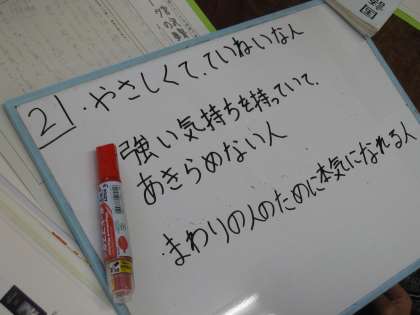 21
・やさしくて、ていねいな人
強い気持ちを持っていて、
あきらめない人
・まわりの人のために本気になれる人